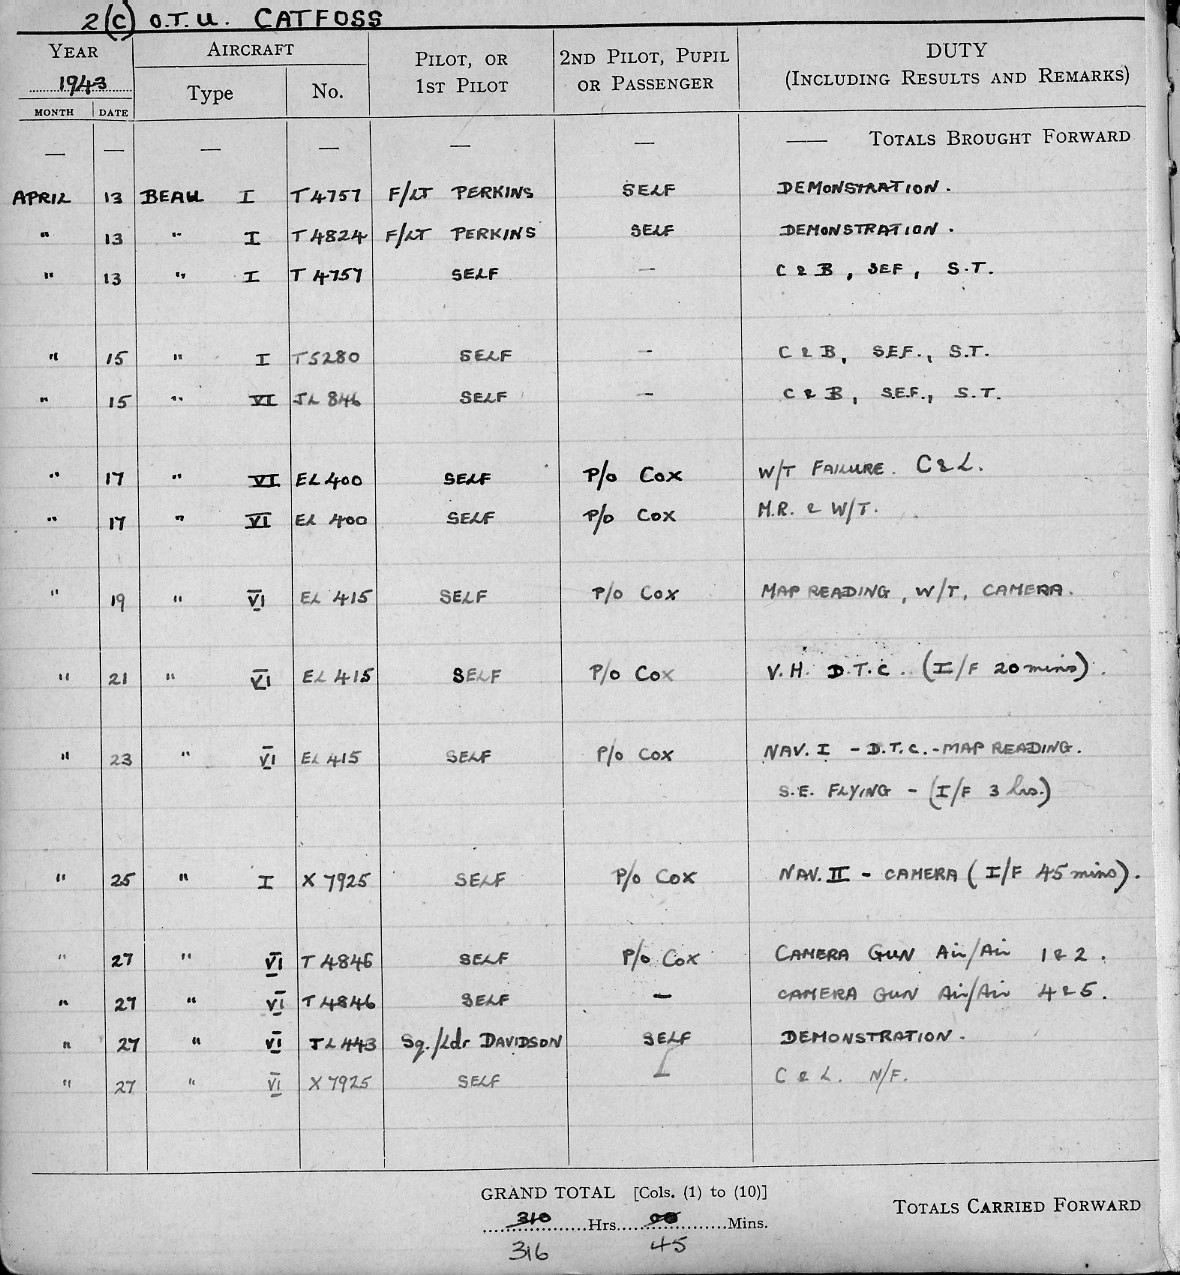 2(C) O.T.U. CATFOSS
YEAR AIRCRAFT PILOT, OR 1ST PILOT 2ND PILOT, PUPIL OR PASSENGER DUTY (INCLUDING RESULTS AND REMARKS)
1943 Type No.
MONTH DATE
— — — — — — —— TOTALS BROUGHT FORWARD
APRIL 13 BEAU I T4757 F/LT PERKINS SELF DEMONSTRATION.
" 13 " I T4824 F/LT PERKINS SELF DEMONSTRATION.
" 13 " I T4757 SELF — C & B, SEF, S.T.
" 15 " I T5280 SELF — C & B, S.E.F., S.T.
" 15 " VI JL 846 SELF — C & B, S.E.F., S.T.
" 17 " VI EL 400 SELF P/O COX W/T FAILURE. C & L.
" 17 " VI EL 400 SELF P/O COX M.R. & W/T.
" 19 " VI EL 415 SELF P/O COX MAP READING, W/T, CAMERA.
" 21 " VI EL 415 SELF P/O COX V.H. D.T.C. (I/F 20 mins).
" 23 " VI EL 415 SELF P/O COX NAV. I - D.T.C. - MAP READING.
S.E. FLYING - (I/F 3 hrs.)
" 25 " I X 7925 SELF P/O COX NAV. II - CAMERA (I/F 45 mins).
" 27 " VI T 4846 SELF P/O COX CAMERA GUN Air/Air 1 & 2.
" 27 " VI T 4846 SELF — CAMERA GUN Air/Air 4 & 5.
" 27 " VI JL 443 Sq./Ldr DAVIDSON SELF DEMONSTRATION.
" 27 " VI X 7925 SELF — C & L. N/F.
GRAND TOTAL [Cols. (1) to (10)] TOTALS CARRIED FORWARD
310 Hrs. 00 Mins.
316 45